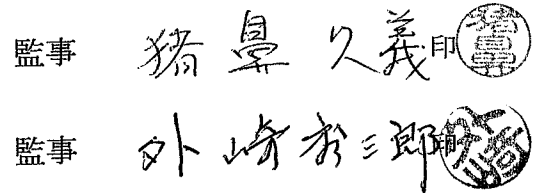 監事 猪鼻久義 印
監事 外崎秀三郎 印